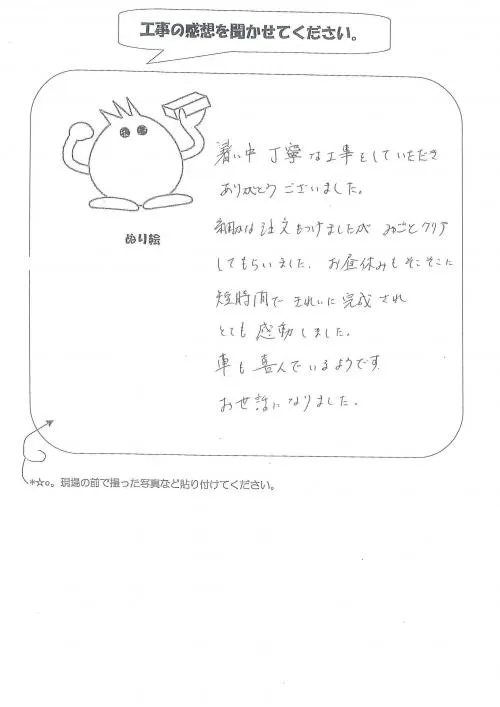 工事の感想を聞かせてください。
暑い中 丁寧な工事をしていただき
ありがとうございました。
細かな注文もつけましたが みごとクリア
してもらいました。お昼休みもそこそこに
短時間で きれいに 完成され
とても 感動しました。
車も 喜んでいるようです
お世話になりました。
ぬり絵
*☆。現場の前で撮った写真など貼り付けてください。